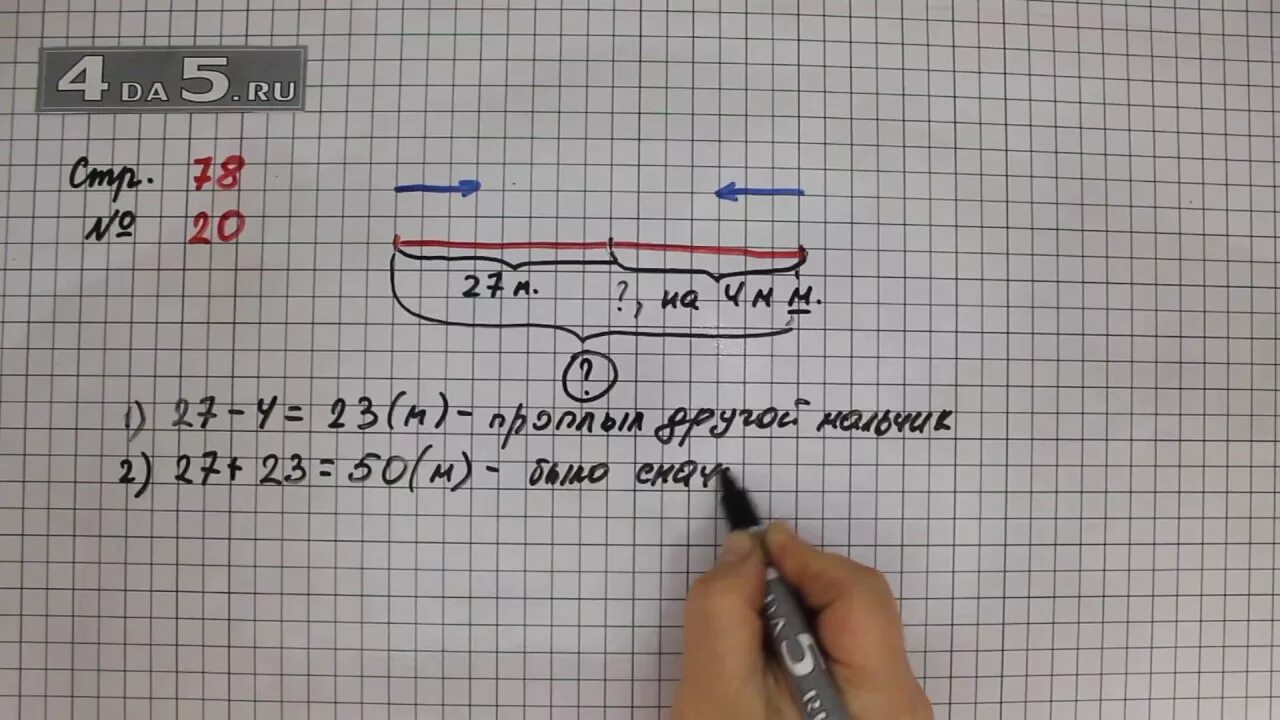 4DA5.RU
Стр. 78
№ 20
27 м. ?, на 4 м м.
?
1) 27 - 4 = 23 (м) - проплыл другой мальчик
2) 27 + 23 = 50 (м) - было снач
DA 5 RU